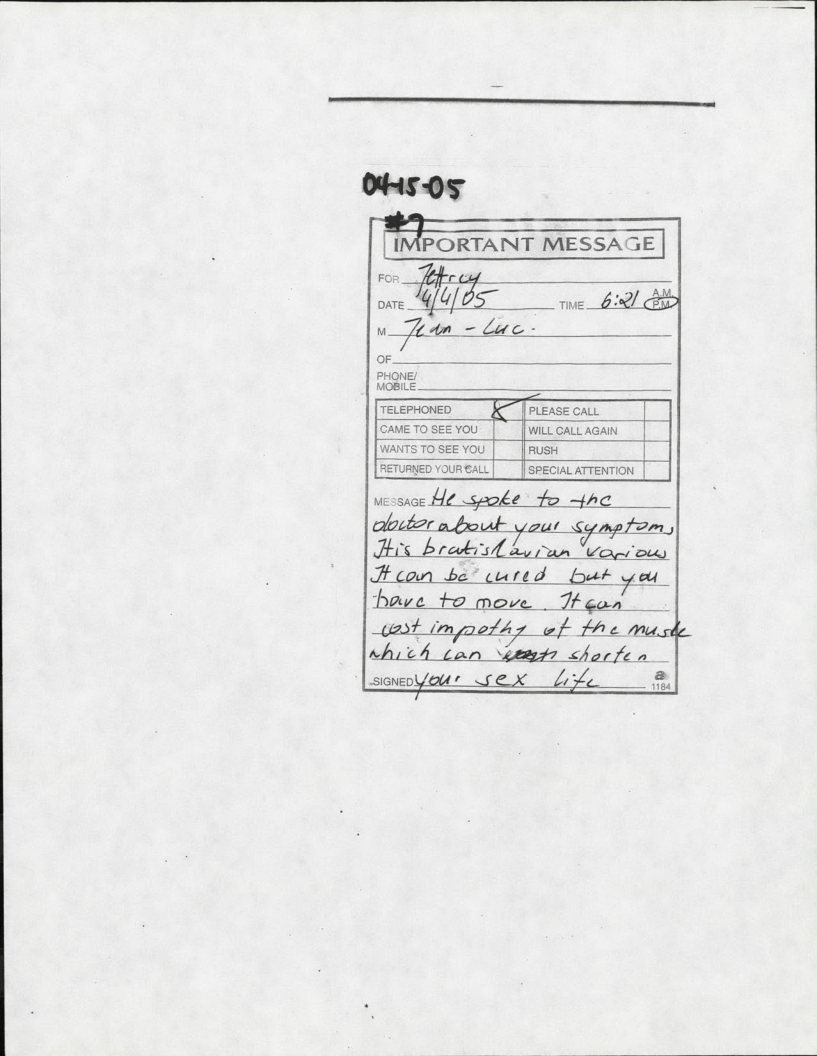 04-15-05
#7
IMPORTANT MESSAGE
FOR Jeffrey
DATE 4/4/05 TIME 6:21 A.M. P.M.
M Jean-Luc.
OF
PHONE/
MOBILE
TELEPHONED PLEASE CALL
CAME TO SEE YOU WILL CALL AGAIN
WANTS TO SEE YOU RUSH
RETURNED YOUR CALL SPECIAL ATTENTION
MESSAGE He spoke to the
doctor about your symptoms
It is bratislavian various
It can be cured but you
have to move. It can
cost impathy of the muscle
which can shorten
SIGNED your sex life
a
1184